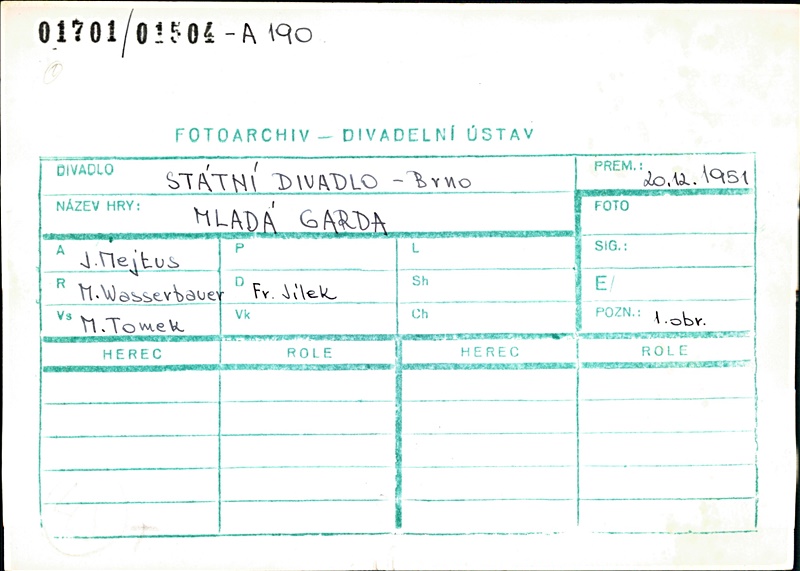 01701/01504-A 190
FOTOARCHIV — DIVADELNÍ ÚSTAV
DIVADLO STÁTNÍ DIVADLO - Brno
PREM.: 20.12.1951
NÁZEV HRY: MLADÁ GARDA
FOTO
A J. Mejtus
P
L
SIG.:
R M. Wasserbauer
D Fr. Jílek
Sh
E/
Vs M. Tomek
Vk
Ch
POZN.: 1. obr.
HEREC ROLE HEREC ROLE